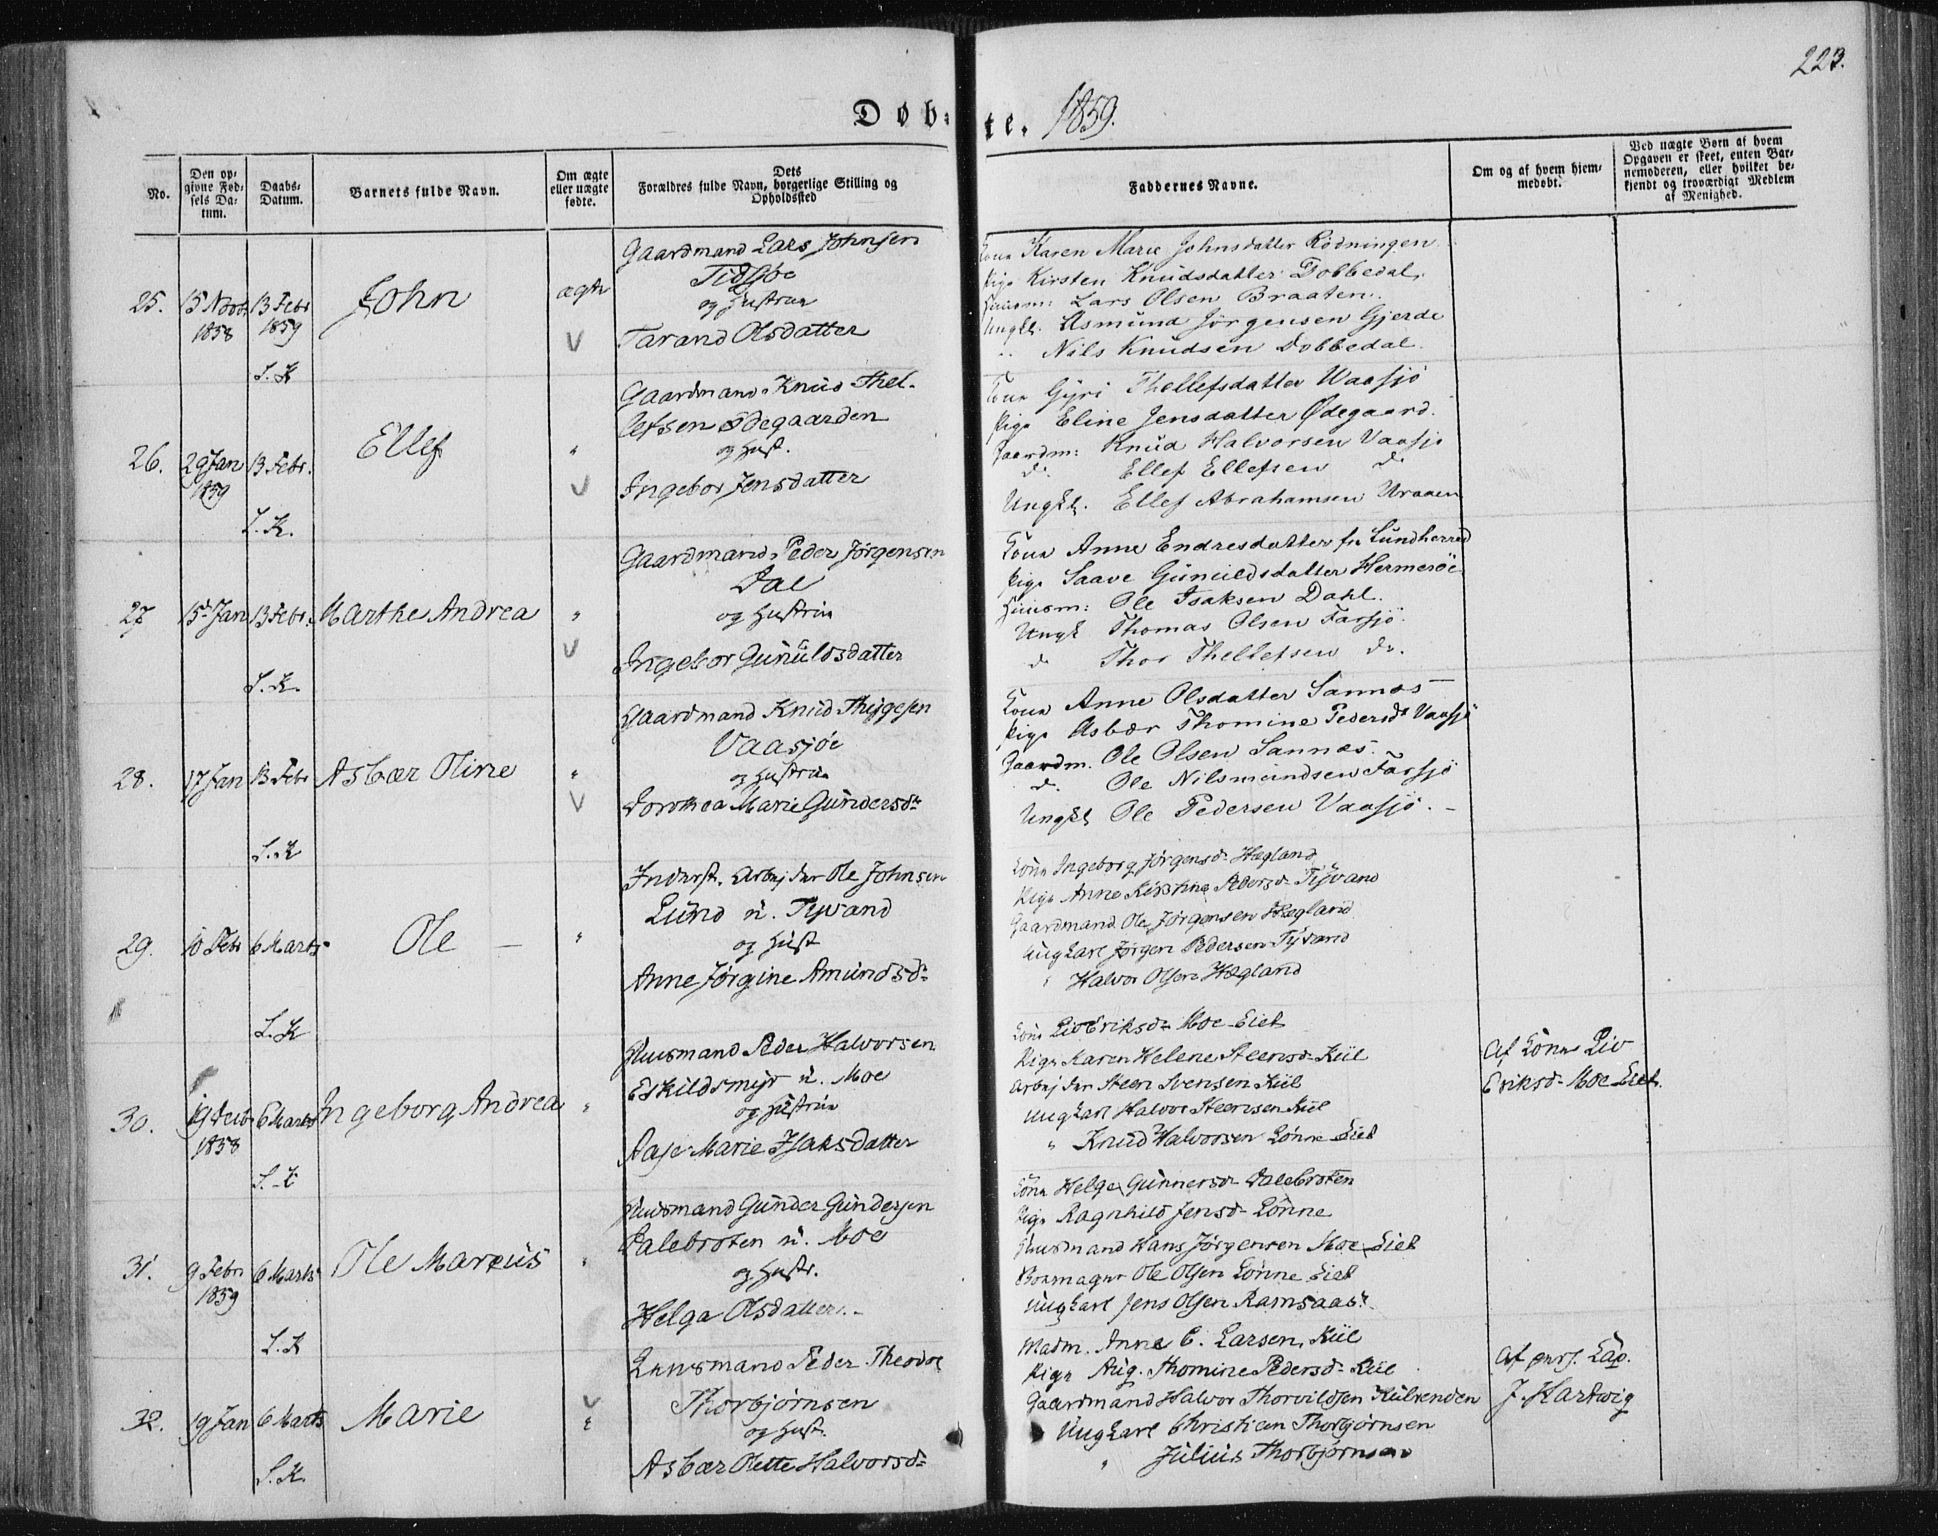 223.
Døbte. 1859.
No.
Den opgivne Fødsels Datum.
Daabs-Datum.
Barnets fulde Navn.
Om ægte eller uægte fødte.
Dets Forældres fulde Navn, borgerlige Stilling og Opholdssted
Faddernes Navne.
Om og af hvem hjemmedøbt.
Ved uægte Børn af hvem Opgaven er skeet, enten Barnemoderen, eller hvilket bekjendt og troværdigt Medlem af Menighed.
25.
15 Novb 1858
13 Febr 1859
S. K
John
ægte
Gaardmand Lars Johnsen
Tidsjøe
og Hustrue
Tarand Olsdatter
Kone Karen Marie Johnsdatter Rödningen
Pige Kirsten Knudsdatter Dobbedal
Huusm: Lars Olsen Braaten
Ungkl. Asmund Jörgensen Gjerde
" Nils Knudsen Dobbedal
26.
29 Jan 1859
13 Febr.
S. K.
Ellef
"
Gaardmand Knud Thel-
lefsen Ødegaarden
og Hust.
Ingebor Jensdatter
Kone Gyri Thellefsdatter Vaasjö
Pige Eline Jensdatter Ødegaard.
Gaardm: Knud Halvorsen Vaasjö
do Ellef Ellefsen do
Ungkl. Ellef Abrahamsen Uraaen
27
15de Jan
13 Febr.
S. K.
Marthe Andrea
"
Gaardmand Peder Jörgensen
Dal
og Hustrue
Ingebor Gunuldsdatter
Kone Anne Endresdatter fr Lundherred
Pige Saave Gunuldsdatter Hermeröe
Huusm: Ole Isaksen Dahl.
Ungk Thomas Olsen Farsjö.
do Thor Thellefsen do.
28.
17 Jan
13 Febr
S. K
Asbær Oline
"
Gaardmand Knud Thygesen
Vaasjöe
og Hustrue
Dorothea Marie Gundersdr
Kone Anne Olsdatter Sannæs
Pige Asbær Thomine Pedersdr Vaasjö
Gaardm. Ole Olsen Sannæs.
do. Ole Nilsmundsen Farsjö
Ungkl Ole Pedersen Vaasjö. -
29.
10 Febr
6 Marts
S. K
Ole
"
Inderst. Arbejder Ole Johnsen
Lund u. Tyvand
og Hust
Anne Jørgine Amundsdr
Kone Ingeborg Jörgensdr Hægland
Pige Anne Kirstine Pedersdr Tyvand
Gaardmand Ole Jørgensen Hægland
Ungkarl Jørgen Pedersen Tyvand
" Halvor Olsen Hægland
30.
19 Decb 1858
6 Marts
S. K
Ingeborg Andrea
"
Huusmand Peder Halvorsen
Eskildsmyr u. Moe
og Hustrue
Aase Marie Isaksdatter
Kone Liv Eriksdr Moe Eiet
Pige Karen Helene Steensdr Kiil
Arbejder Steen Svensen Kiil
Ungkarl Halvor Steensen Kiil
" Knud Halvorsen Lönne Eiet
Af Kone Liv
Eriksdr Moe Eiet.
31.
9 Febr 1859
6 Marts
S. K
Ole Marcus
"
Huusmand Gunder Gundersen
Dalebroten u. Moe
og Hustr.
Helga Olsdatter. -
Kone Helge Gunnersdr Dalebroten
Pige Ragnhild Jensdr Lönne
Huusmand Hans Jørgensen Moe Eiet
Ole Olsen Lönne Eiet
Ungkarl Jens Olsen Ramsaas.
32.
19 Jan
6 Marts
S. K.
Marie
"
Peder Theodor
Thorbjörnsen
og Hust.
Asbær Olette Halvorsdr
Madm. Anne C. Larsen, Kiil
Pige Aug. Thomine Pedersdr Kiil
Gaardmand Halvor Thorvildsen Kiilsenden
Ungkarl Christian Thorbjörnsen
" Julius Thorbjörnsen
Af pers. Cap.
J. Hartwig